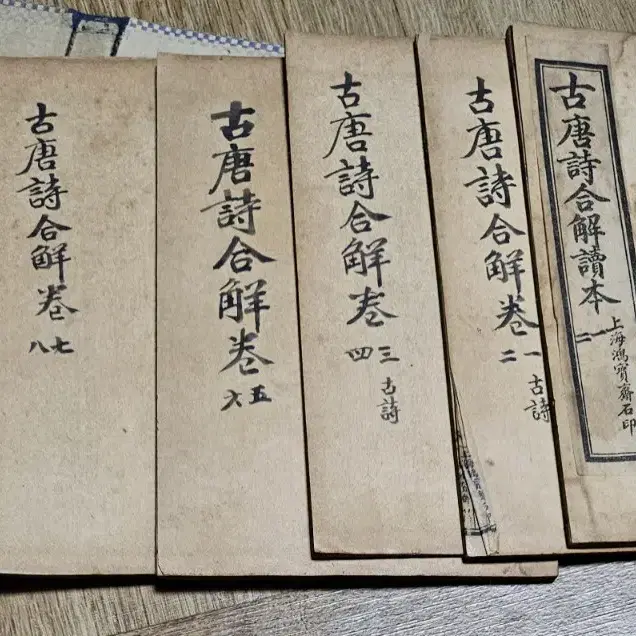 古唐詩合解讀本
一二
上海鴻寶齋石印
古唐詩合解卷
一二
古詩
古唐詩合解卷
三四
古詩
古唐詩合解卷
五六
古唐詩合解卷
七八